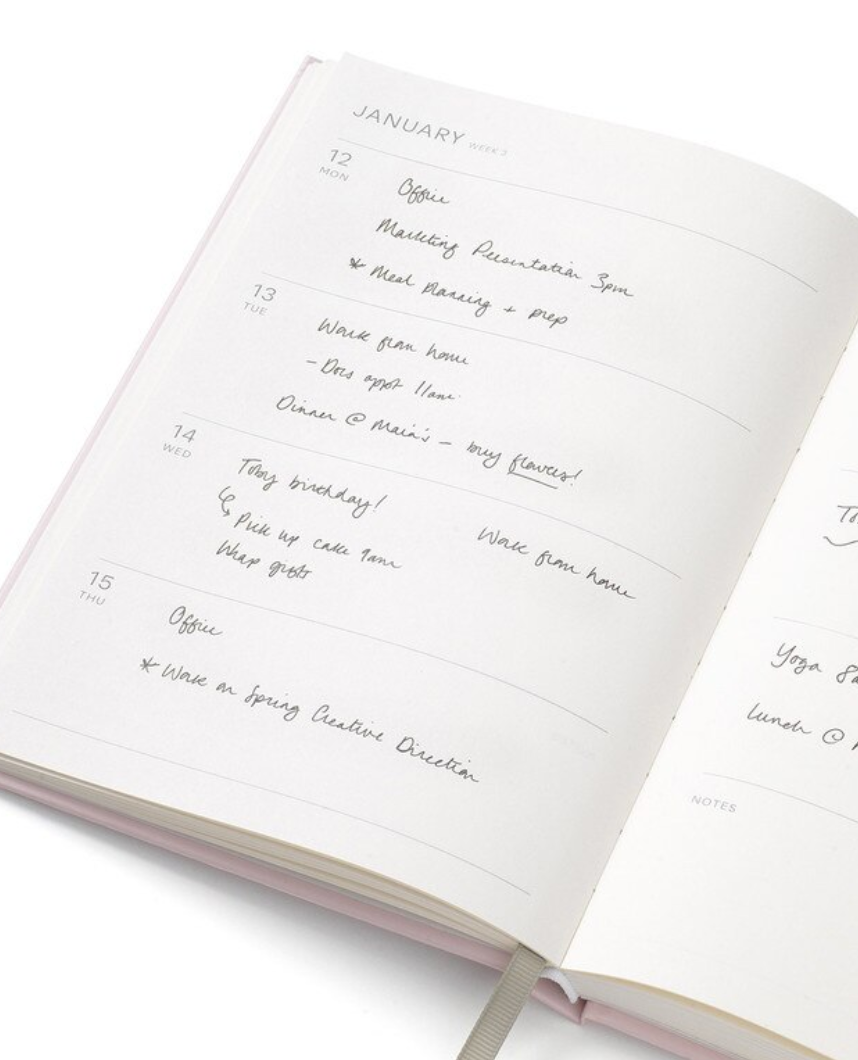 JANUARY WEEK 3
12
MON
Office
Marketing Presentation 3pm
* Meal Planning + prep
13
TUE
Work from home
- Docs appt 11am
Dinner @ Maia's - buy flowers!
14
WED
Toby birthday!
Pick up cake 9am
Wrap gifts
Work from home
15
THU
Office
* Work on Spring Creative Direction
Yoga
Lunch @
NOTES